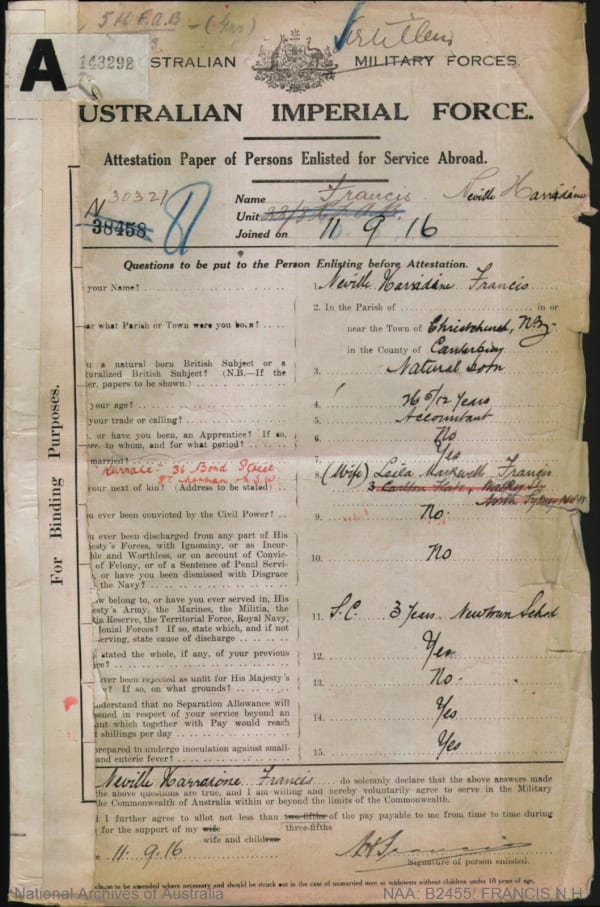 5th F.A.B - (Gnr)
A
143292
STRALIAN MILITARY FORCES.
USTRALIAN IMPERIAL FORCE.
Attestation Paper of Persons Enlisted for Service Abroad.
N 30321
38458
Name Francis Neville Harradine
Unit
Joined on 11 9 16
Questions to be put to the Person Enlisting before Attestation.
your Name?
1. Neville Harradine Francis
2. In the Parish of in or
ar what Parish or Town were you born?
near the Town of Christchurch, N.Z.
in the County of Canterbury
u a natural born British Subject or a
turalized British Subject? (N.B.—If the
er, papers to be shown.)
3. Natural born
your age?
4. 26 5/12 Years
your trade or calling?
5. Accountant
, or have you been, an Apprentice? If so,
ere, to whom, and for what period?
6. No
married?
7. Yes
36 Bond Street
your next of kin? (Address to be stated)
8. (Wife) Leila Markwell Francis
3 Carlton Flats, Walker St
North Sydney N.S.W
u ever been convicted by the Civil Power?
9. No
u ever been discharged from any part of His
esty's Forces, with Ignominy, or as Incor-
ble and Worthless, or on account of Convic-
of Felony, or of a Sentence of Penal Servi-
, or have you been dismissed with Disgrace
the Navy?
10. No
w belong to, or have you ever served in, His
esty's Army, the Marines, the Militia, the
tia Reserve, the Territorial Force, Royal Navy,
lonial Forces? If so, state which, and if not
erving, state cause of discharge
11. S.C. 3 Years Newtown School
stated the whole, if any, of your previous
ce?
12. Yes
ever been rejected as unfit for His Majesty's
? If so, on what grounds?
13. No.
nderstand that no Separation Allowance will
ssued in respect of your service beyond an
unt which together with Pay would reach
t shillings per day
14. Yes
prepared to undergo inoculation against small-
and enteric fever?
15. Yes
For Binding Purposes.
Neville Harradine Francis do solemnly declare that the above answers made
the above questions are true, and I am willing and hereby voluntarily agree to serve in the Military
the Commonwealth of Australia within or beyond the limits of the Commonwealth.
I further agree to allot not less than two-fifths of the pay payable to me from time to time during
three-fifths
for the support of my wife
wife and children
e 11. 9. 16
N H Francis
Signature of person enlisted.
clause to be amended where necessary and should be struck out in the case of unmarried men or widowers without children under 18 years of age.
National Archives of Australia
NAA: B2455, FRANCIS N H